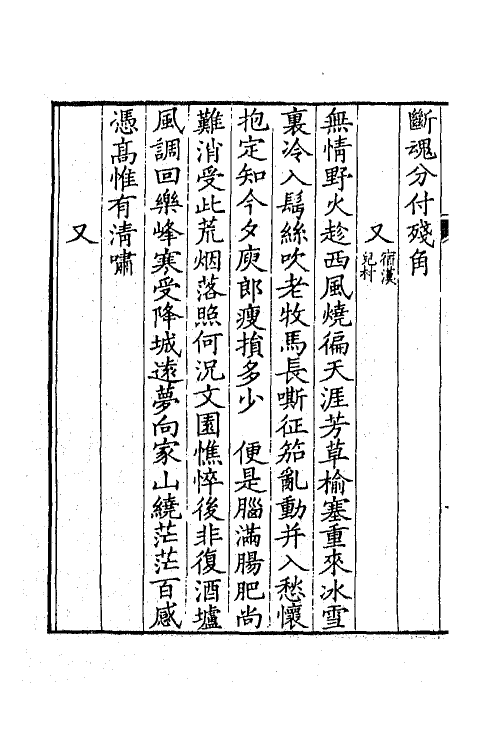 斷魂分付殘角
又 宿漢兒村
無情野火趁西風燒徧天涯芳草榆塞重來冰雪
裏冷入鬢絲吹老牧馬長嘶征笳亂動并入愁懷
抱定知今夕庾郎瘦損多少　便是腦滿腸肥尚
難消受此荒烟落照何況文園憔悴後非復酒壚
風調回樂峰寒受降城遠夢向家山繞茫茫百感
憑高惟有清嘯
又